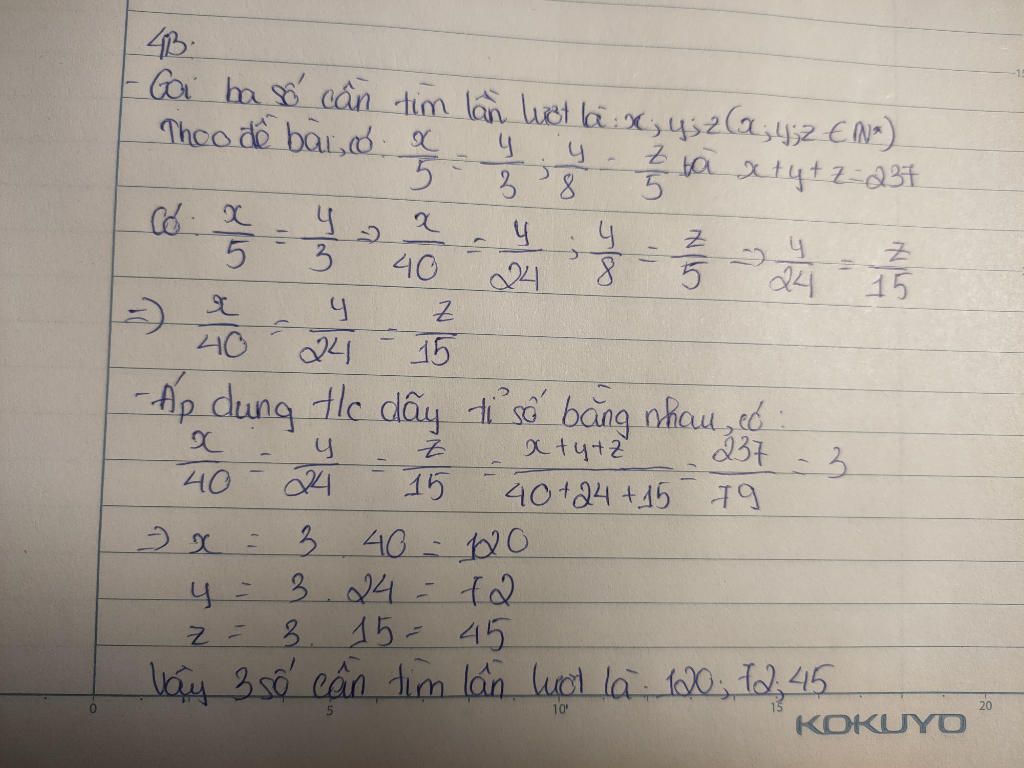 4B.
- Gọi ba số cần tìm lần lượt là: x; y; z (x; y; z ∈ N*)
Theo đề bài, có: x/5 = y/3 ; y/8 = z/5 và x + y + z = 237
Có: x/5 = y/3 => x/40 = y/24 ; y/8 = z/5 => y/24 = z/15
=> x/40 = y/24 = z/15
- Áp dụng t/c dãy tỉ số bằng nhau, có:
x/40 = y/24 = z/15 = x+y+z/40+24+15 = 237/79 = 3
=> x = 3 . 40 = 120
y = 3 . 24 = 72
z = 3 . 15 = 45
Vậy 3 số cần tìm lần lượt là: 120; 72; 45
0 5 10 15 20
KOKUYO